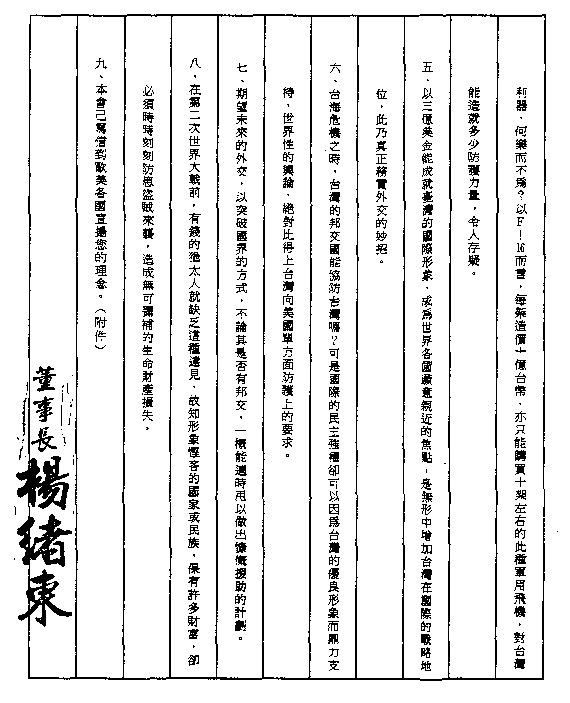 利器，何樂而不爲？以F－16而言，每架造價十億台幣，亦只能購買十架左右的此種軍用飛機，對台灣
能造就多少防護力量，令人存疑。
五、以三億美金能成就臺灣的國際形象，成爲世界各國願意親近的焦點，是無形中增加台灣在國際的戰略地
位，此乃真正務實外交的妙招。
六、台海危機之時，台灣的邦交國能協防台灣嗎？可是國際的民主強權卻可以因爲台灣的優良形象而鼎力支
持，世界性的輿論，絕對比得上台灣向美國單方面防護上的要求。
七、期望未來的外交，以突破國界的方式，不論其是否有邦交，一概能適時用以做出慷慨援助的計劃。
八、在第二次世界大戰前，有錢的猶太人就缺乏這種遠見，故知形象慳吝的國家或民族，保有許多財富，卻
必須時時刻刻防患盜賊來襲，造成無可彌補的生命財產損失。
九、本會已寫信到歐美各國宣揚您的理念。（附件）
董事長 楊緒東